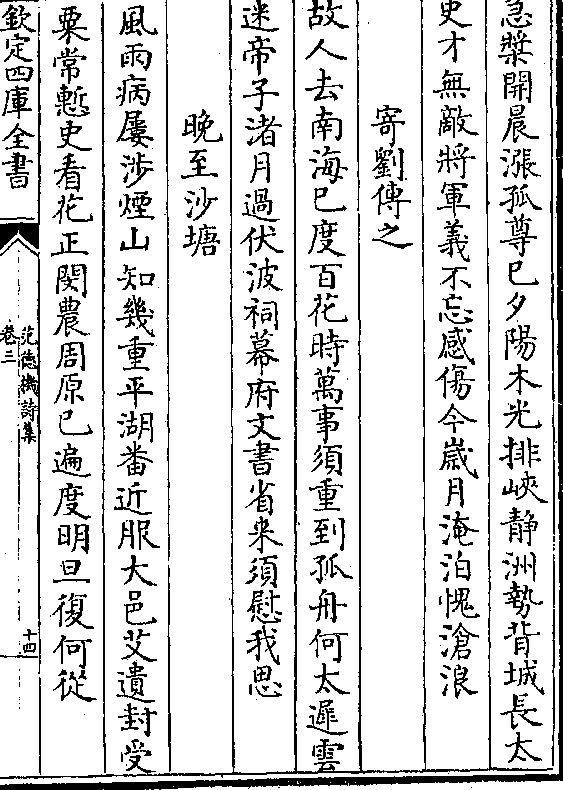 急槳開晨漲孤尊已夕陽木光排峽靜洲勢背城長太
史才無敵將軍義不忘感傷今歲月淹泊愧滄浪
寄劉傳之
故人去南海已度百花時萬事須重到孤舟何太遲雲
迷帝子渚月過伏波祠幕府文書省来須慰我思
晚至沙塘
風雨病屢涉煙山知幾重平湖番近服大邑艾遺封受
粟常慙史看花正閔農周原已遍度明旦復何從
欽定四庫全書
范德機詩集
卷三
十四